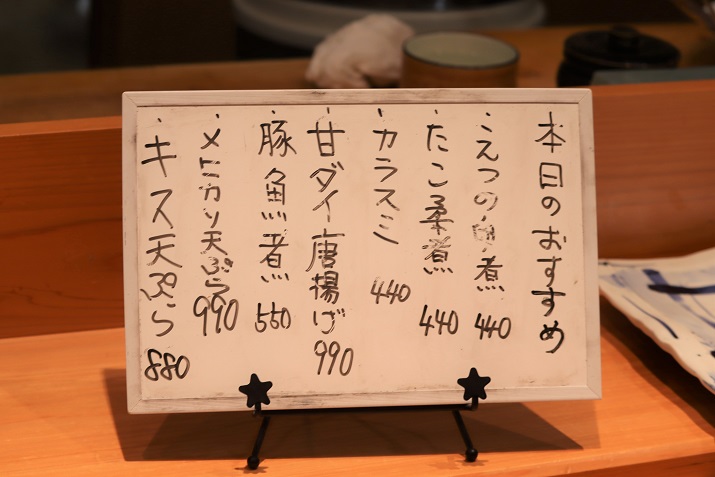 本日のおすすめ
・えつの魚煮 440
・たこ柔煮 440
・カラスミ 440
・甘ダイ唐揚げ 990
・豚魚煮 550
・メヒカリ天ぷら 990
・キス天ぷら 880